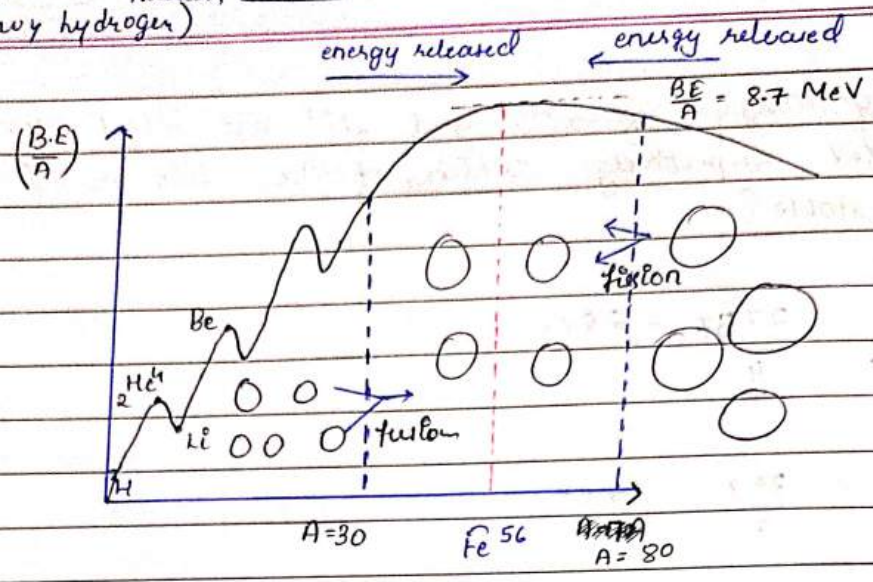 hydrogen)
energy released
energy released
BE/A = 8.7 MeV
(B.E/A)
Be
fission
₂He⁴
Li
fusion
H
A=30
Fe 56
A=80